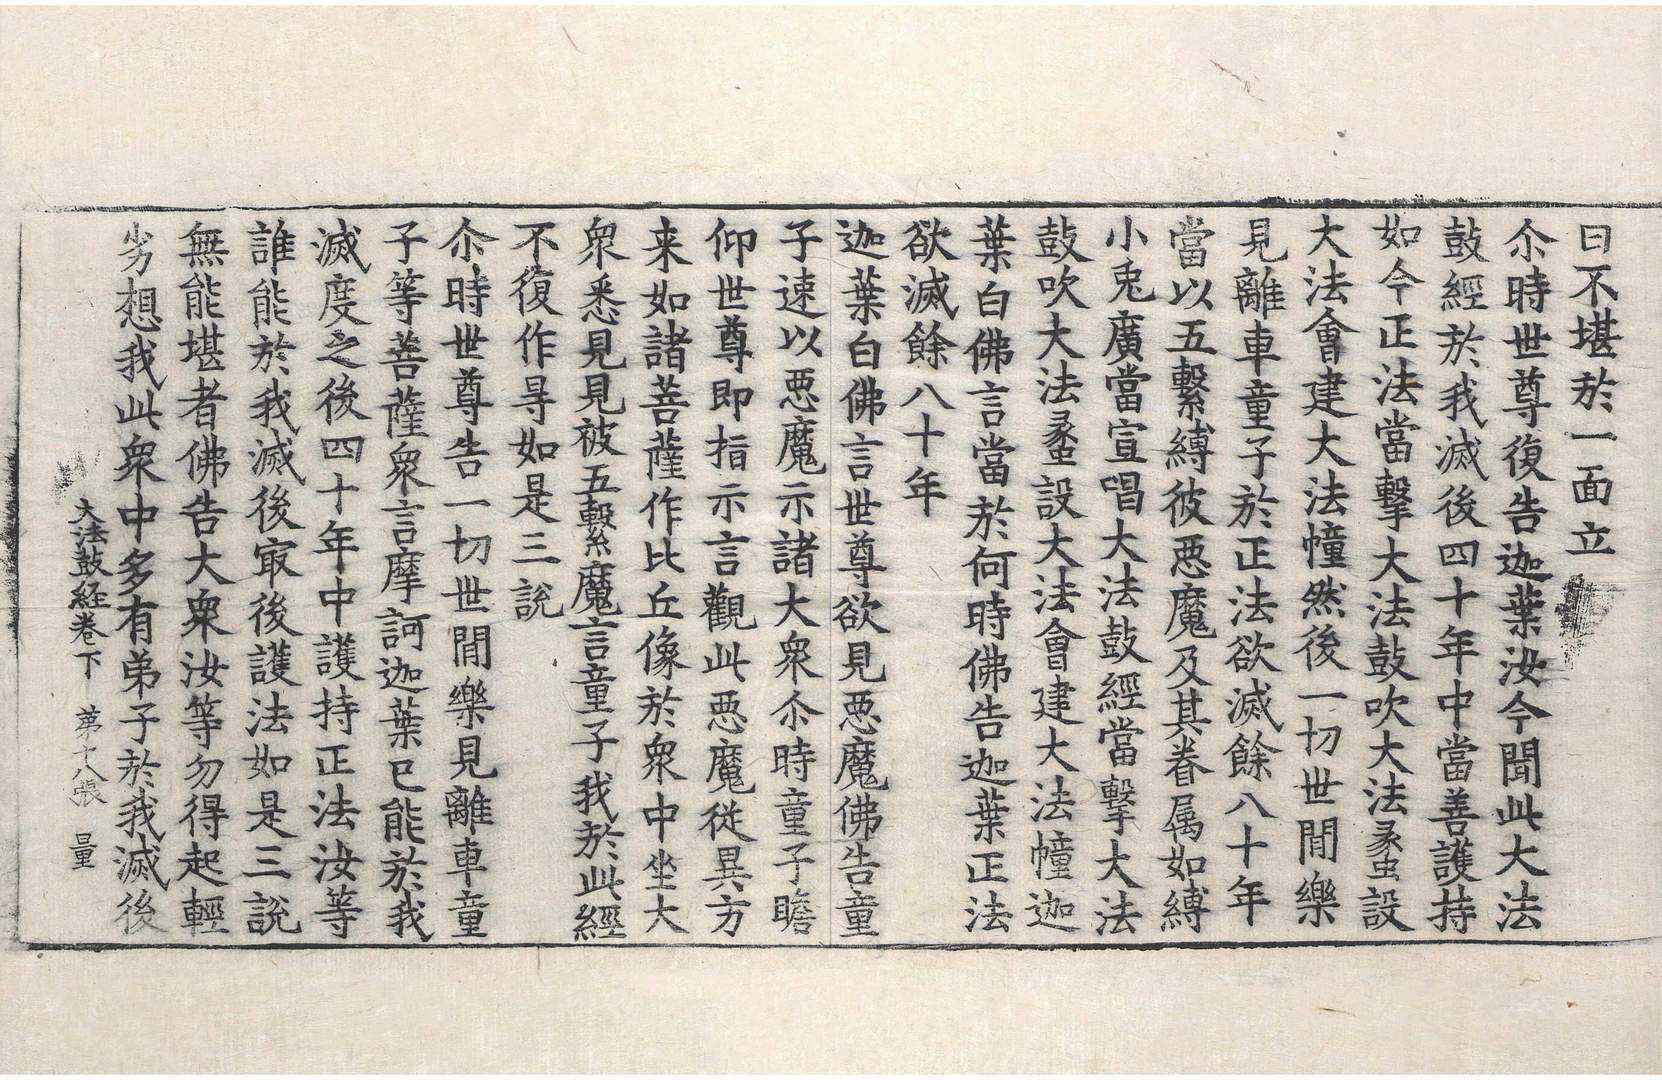 曰不堪於一面立
尒時世尊復告迦葉汝今聞此大法
鼓經於我滅後四十年中當善護持
如今正法當擊大法鼓吹大法蠡設
大法會建大法幢然後一切世閒樂
見離車童子於正法欲滅餘八十年
當以五繫縛彼惡魔及其眷属如縛
小兎廣當宣唱大法鼓經當擊大法
鼓吹大法蠡設大法會建大法幢迦
葉白佛言當於何時佛告迦葉正法
欲滅餘八十年
迦葉白佛言世尊欲見惡魔佛告童
子速以惡魔示諸大衆尒時童子瞻
仰世尊即指示言觀此惡魔從異方
来如諸菩薩作比丘像於衆中坐大
衆悉見見被五繫魔言童子我於此經
不復作㝵如是三說
尒時世尊告一切世閒樂見離車童
子等菩薩衆言摩訶迦葉已能於我
滅度之後四十年中護持正法汝等
誰能於我滅後㝡後護法如是三說
無能堪者佛告大衆汝等勿得起輕
劣想我此衆中多有弟子於我滅後
大法鼓経卷下 第十八張 量